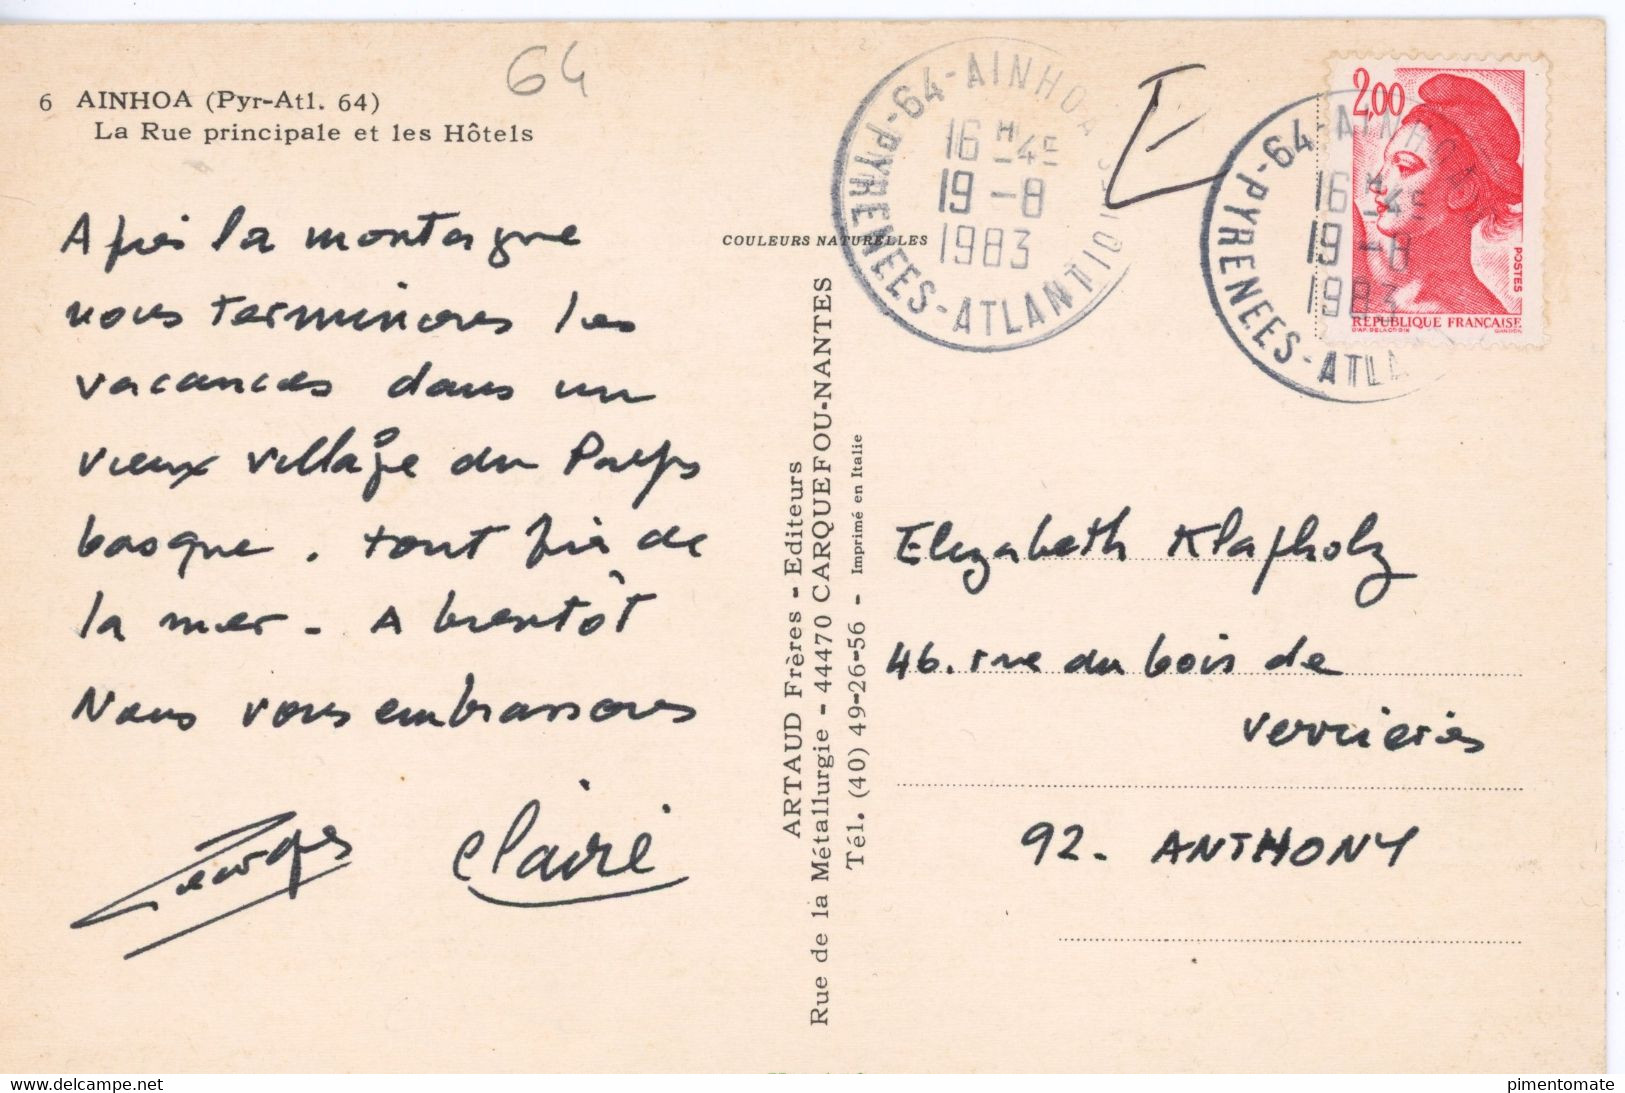 64
6 AINHOA (Pyr-Atl. 64)
La Rue principale et les Hôtels
Après la montagne
nous terminons les
vacances dans un
vieux village du Pays
basque. tout près de
la mer. A bientôt
Nous vous embrassons
Georges Claire
COULEURS NATURELLES
ARTAUD Frères - Editeurs
Rue de la Métallurgie - 44470 CARQUEFOU-NANTES
Tél. (40) 49-26-56 - Imprimé en Italie
64-AINHOA
16 H-45
19-8
1983
PYRENEES-ATLANTIQUES
E
2,00
POSTES
REPUBLIQUE FRANÇAISE
D'AP. DELACROIX GANDON
64-AINHOA
16 H-45
19-8
1983
PYRENEES-ATL
Elizabeth Klapholz
46. rue du bois de
verrieres
92. ANTHONY
pimentomate